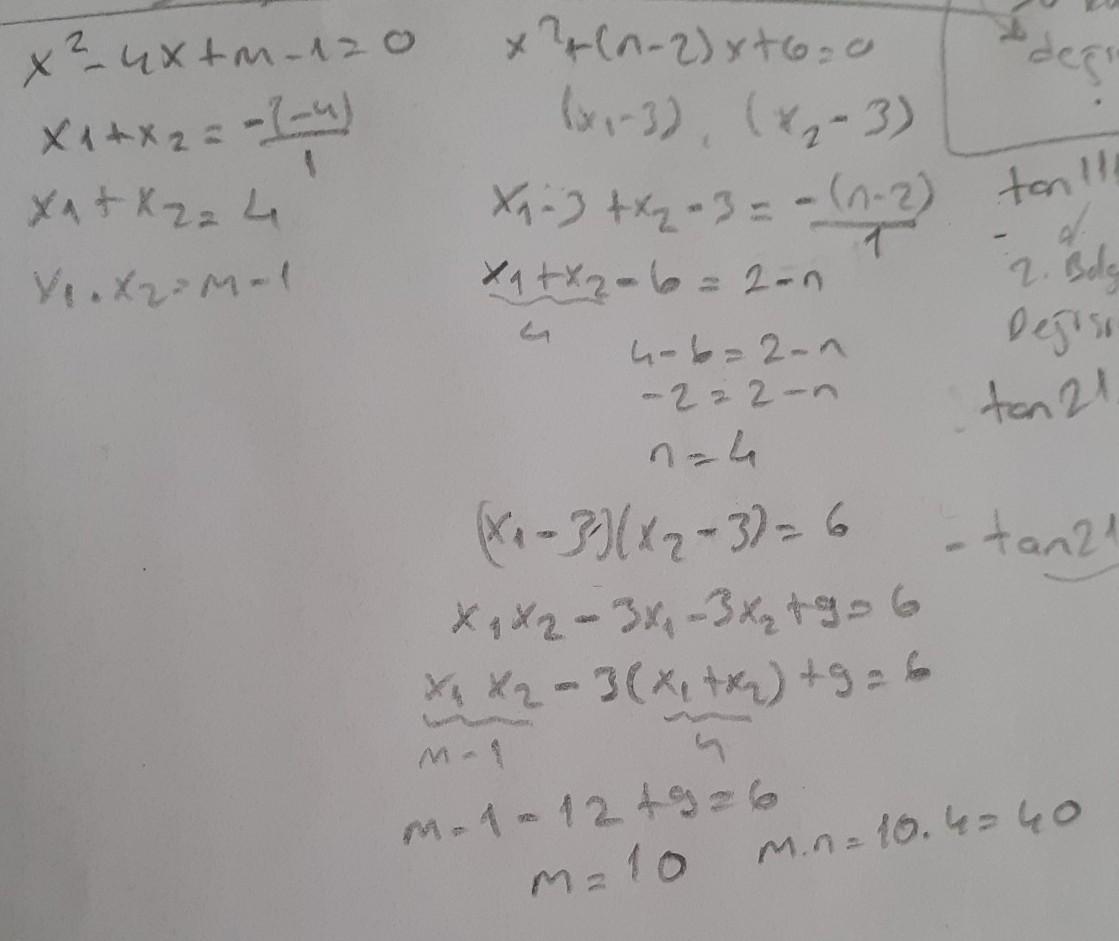 x² - 4x + m - 1 = 0
x1 + x2 = -(-4)/1
x1 + x2 = 4
x1 . x2 = m - 1
x² + (n-2)x + 6 = 0
(x1-3), (x2-3)
x1-3 + x2-3 = -(n-2)/1
x1+x2 - 6 = 2-n
4
4-6 = 2-n
-2 = 2-n
n = 4
(x1-3)(x2-3) = 6
x1x2 - 3x1 - 3x2 + 9 = 6
x1 x2 - 3(x1+x2) + 9 = 6
m-1 4
m-1-12+9 = 6
m = 10 m.n = 10.4 = 40
tan
2.
tan21
-tan21